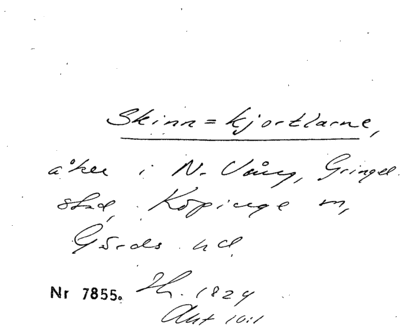 Skinn=kjortlarne,
åker i N. Vång, Gringel-
stad, Köpinge sn,
Gärds hd.
Nr 7855. Sk. 1824
Akt 10:1